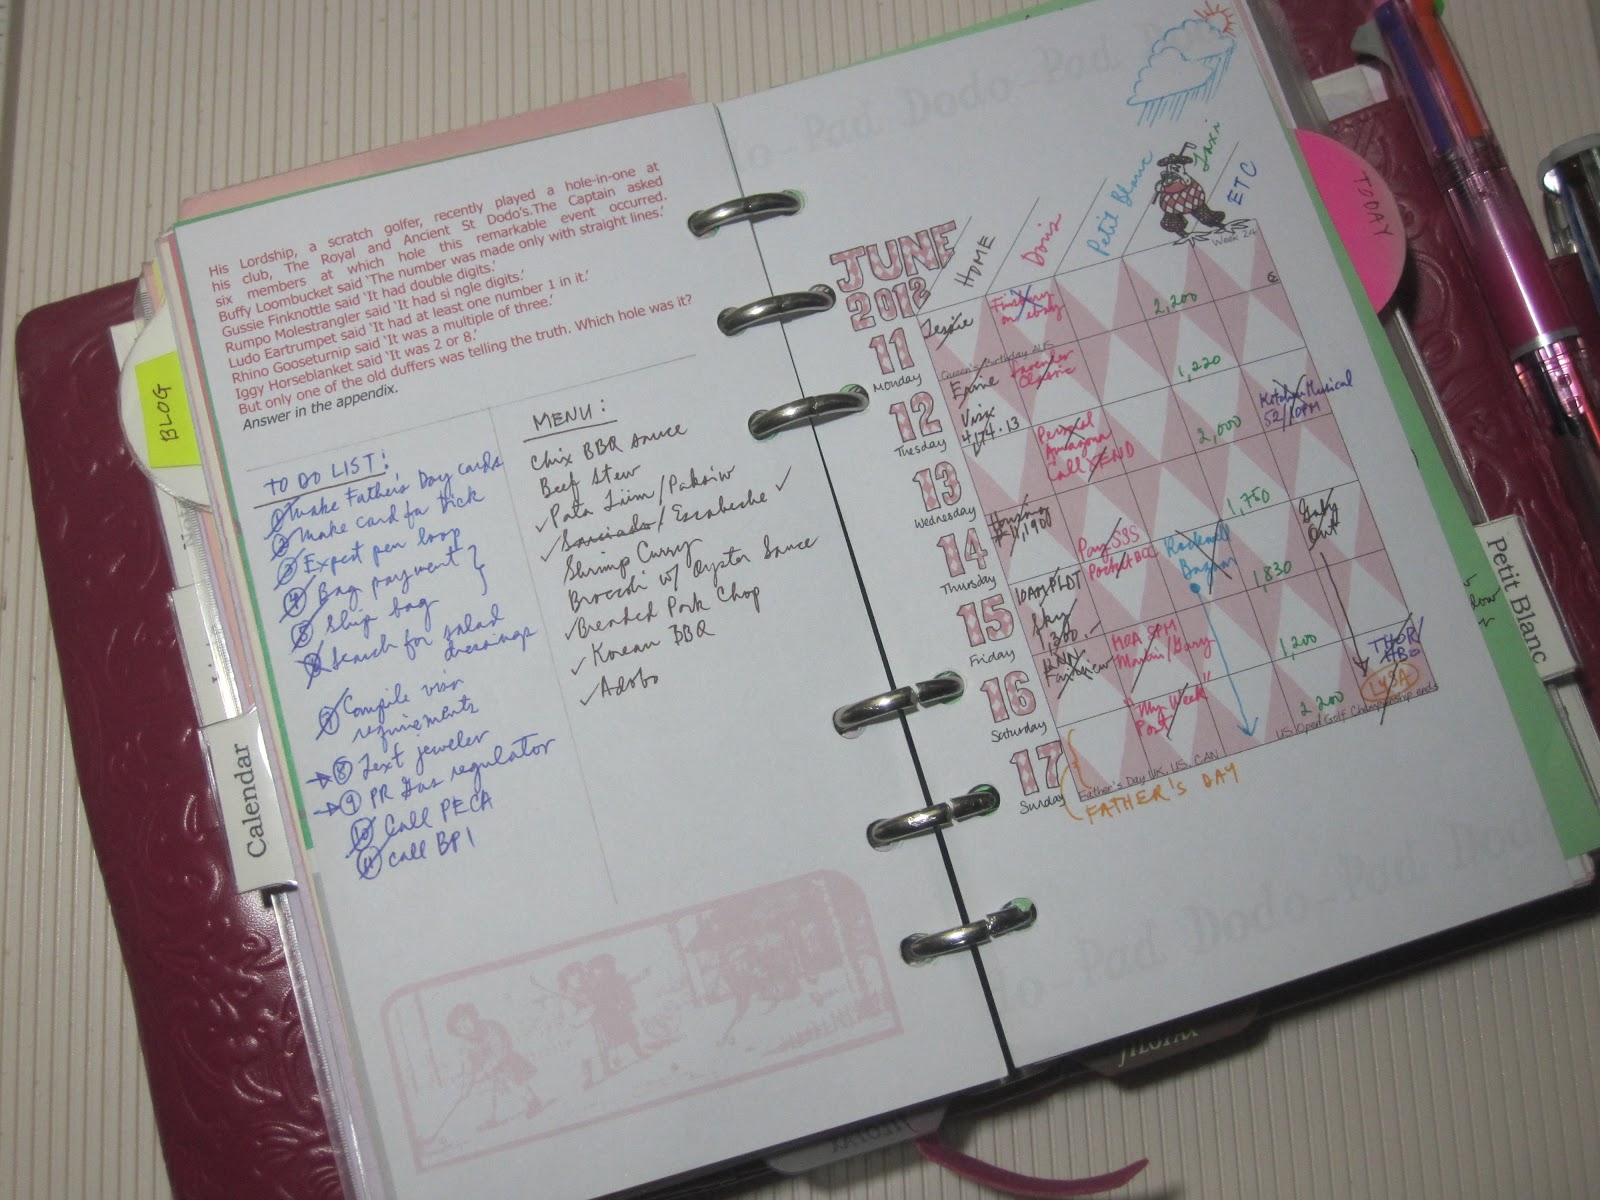 His Lordship, a scratch golfer, recently played a hole-in-one at
his club, The Royal and Ancient St Dodo's.The Captain asked
six members at which hole this remarkable event occurred.
Buffy Loombucket said 'The number was made only with straight lines.'
Gussie Finknottle said 'It had double digits.'
Rumpo Molestrangler said 'It had si ngle digits.'
Ludo Eartrumpet said 'It had at least one number 1 in it.'
Rhino Gooseturnip said 'It was a multiple of three.'
Iggy Horseblanket said 'It was 2 or 8.'
But only one of the old duffers was telling the truth. Which hole was it?
Answer in the appendix.
BLOG
Calendar
TO DO LIST:
1 Make Father's Day cards
2 Make card for
3 Expect pen loop
4 Bag payment
5 Ship bag
6 Search for salad
dressings
7 Compile visa
requirements
8 Text jeweler
9 PR Gas regulator
10 Call PECA
11 Call BPI
MENU:
Chix BBQ Sauce
Beef Stew
Pata Tim/Paksiw
Sarciado/Escabeche
Shrimp Curry
Broccoli w/ Oyster Sauce
Breaded Pork Chop
Korean BBQ
Adobo
Dodo-Pad
JUNE
2012
HOME
Doris
Petit Blanc
Taxi
ETC
Week 24
11
Monday
Jessie
on ebay
2,200
Queen's Birthday AUS
12
Tuesday
Ernie
Lavender
Classic
1,220
13
Wednesday
Visa
4,174.13
Personal
Amazona
Call SEND
2,000
Katy Musical
52/10PM
14
Thursday
Housing
#11,900
Pay SSS
Pocket BCC
Rockwell
Bazaar
1,750
Gaby
Out
15
Friday
10AM PLDT
Sky
1,300.-
HOA 8PM
Martin/Gary
1,830
16
Saturday
Fairview
"My Week"
Post
1,200
THOR/
HBO
17
Sunday
2,200
LYSA
Father's Day UK, US, CAN
US Open Golf Championship ends
FATHER'S DAY
Dodo-Pad
TODAY
Petit Blanc
JILOFAX